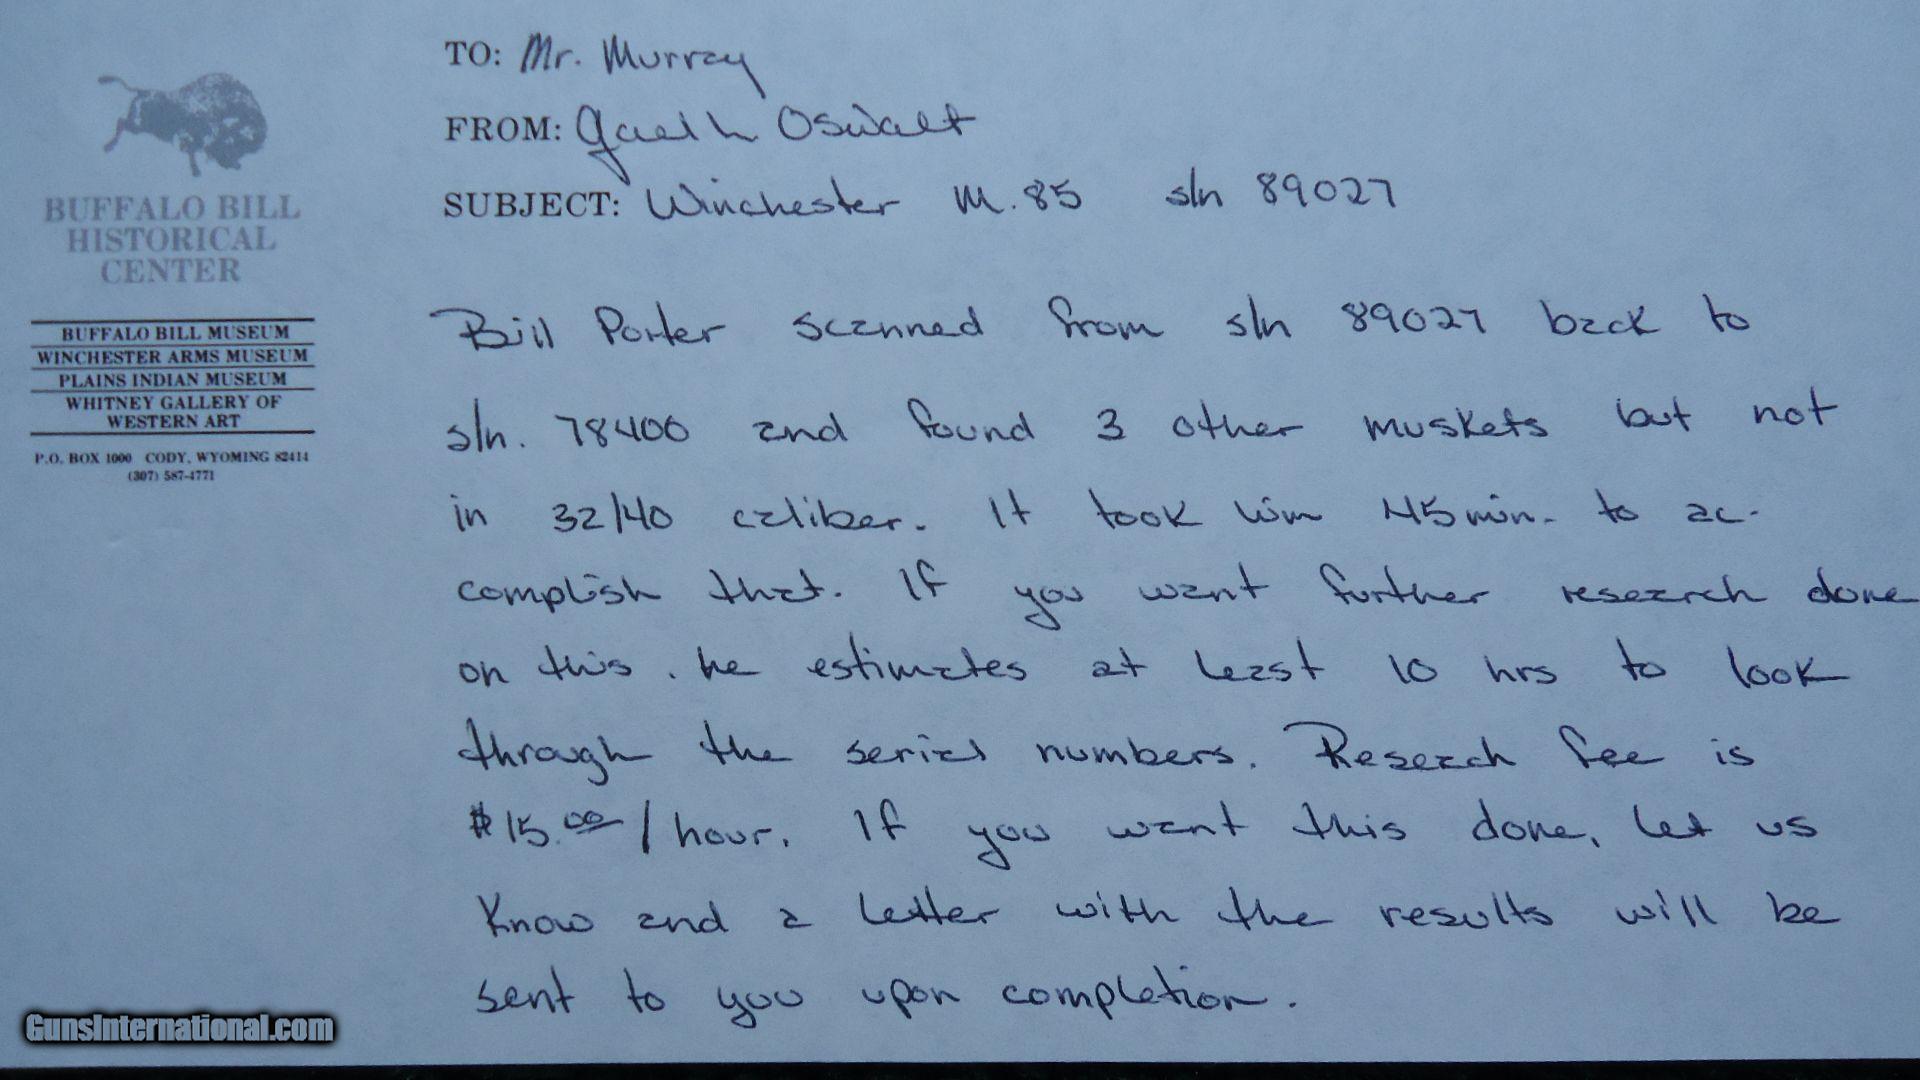 BUFFALO BILL
HISTORICAL
CENTER
BUFFALO BILL MUSEUM
WINCHESTER ARMS MUSEUM
PLAINS INDIAN MUSEUM
WHITNEY GALLERY OF
WESTERN ART
P.O. BOX 1000 CODY, WYOMING 82414
(307) 587-4771
TO: Mr. Murray
FROM: Gael h Oswalt
SUBJECT: Winchester M.85 s/n 89027
Bill Porter scanned from s/n 89027 back to
s/n. 78400 and found 3 other muskets but not
in 32/40 caliber. It took him 45 min. to ac-
complish that. If you want further research done
on this, he estimates at least 10 hrs to look
through the serial numbers. Reseach fee is
$15.00/hour. If you want this done, let us
know and a letter with the results will be
sent to you upon completion.
GunsInternational.com